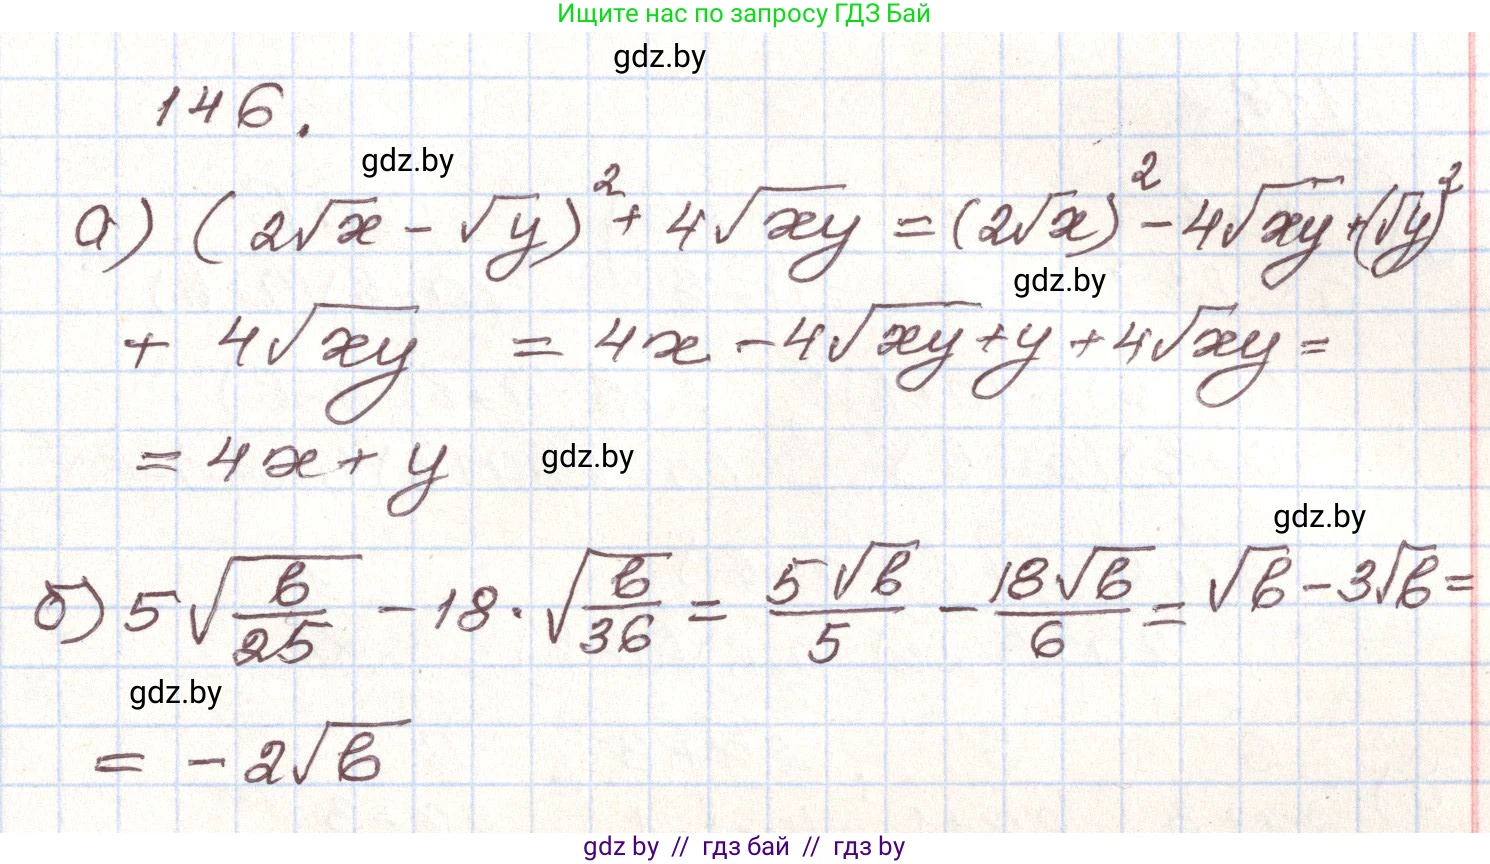 Ищите нас по запросу ГДЗ Бай
gdz.by
146.
gdz.by
а) (2√x - √y)² + 4√xy = (2√x)² - 4√xy + (√y)²
gdz.by
+ 4√xy = 4x - 4√xy + y + 4√xy =
= 4x + y
gdz.by
gdz.by
б) 5√(b/25) - 18 · √(b/36) = 5√b/5 - 18√b/6 = √b - 3√b =
gdz.by
= - 2√b
gdz.by // гдз бай // гдз by